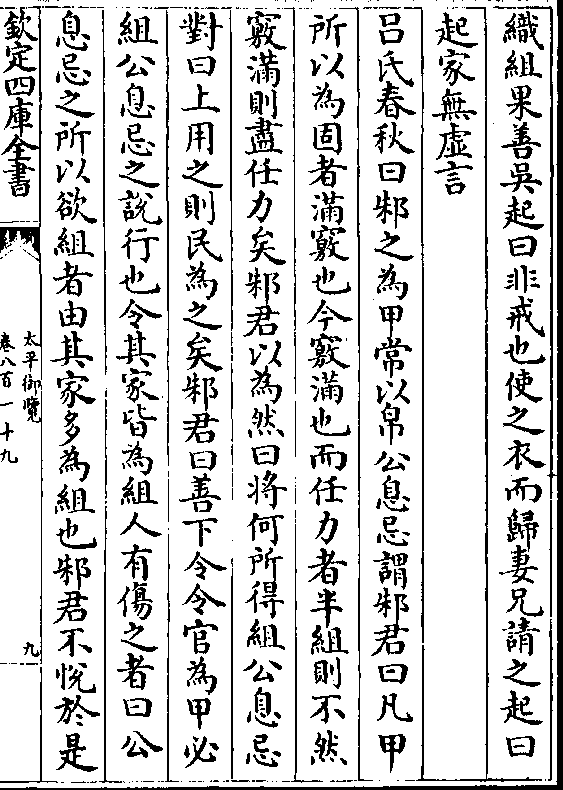 織組果善吳起曰非戒也使之衣而歸妻兄請之起曰
起家無虛言
呂氏春秋曰邾之為甲常以帛公息忌謂邾君曰凡甲
所以為固者滿竅也今竅滿也而任力者半組則不然
竅滿則盡任力矣邾君以為然曰将何所得組公息忌
對曰上用之則民為之矣邾君曰善下令令官為甲必
組公息忌之說行也令其家皆為組人有傷之者曰公
息忌之所以欲組者由其家多為組也邾君不悅於是
欽定四庫全書
太平御覽
卷八百一十九
九